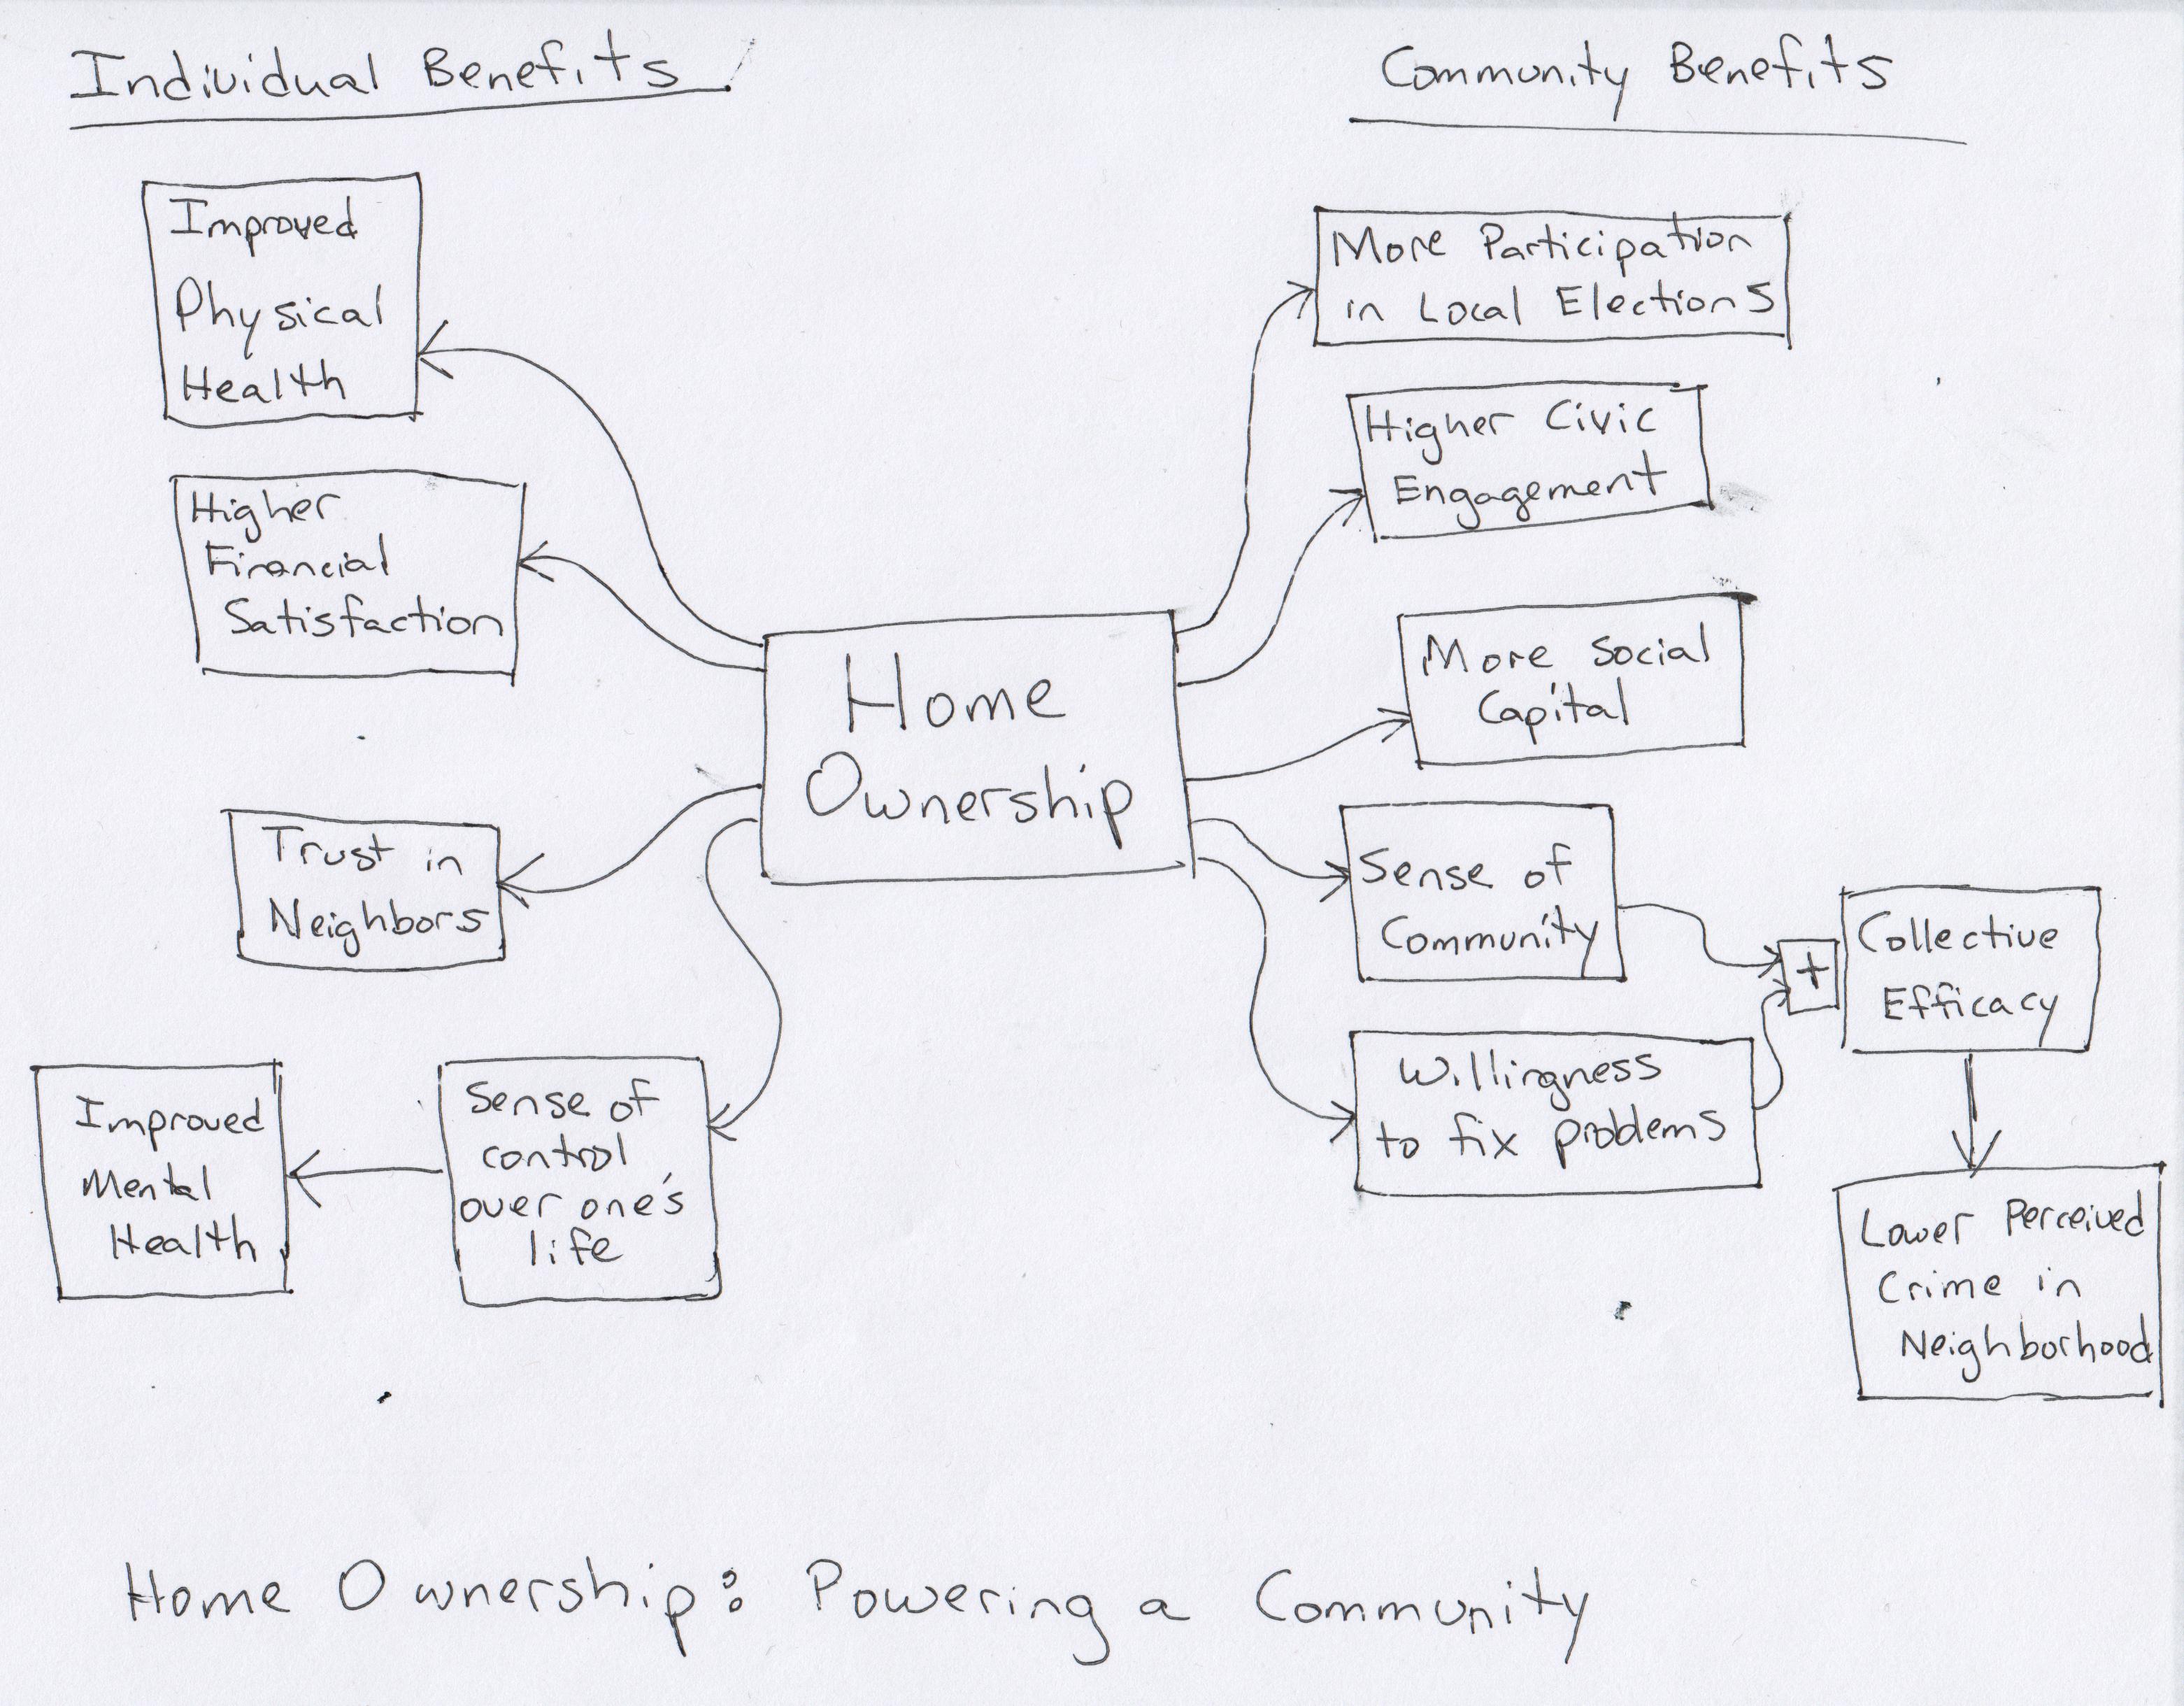 Individual Benefits
Community Benefits
Improved
Physical
Health
Higher
Financial
Satisfaction
Trust in
Neighbors
Improved
Mental
Health
Sense of
control
over one's
life
Home
Ownership
More Participation
in Local Elections
Higher Civic
Engagement
More Social
Capital
Sense of
Community
Willingness
to fix problems
+
Collective
Efficacy
Lower Perceived
Crime in
Neighborhood
Home Ownership: Powering a Community